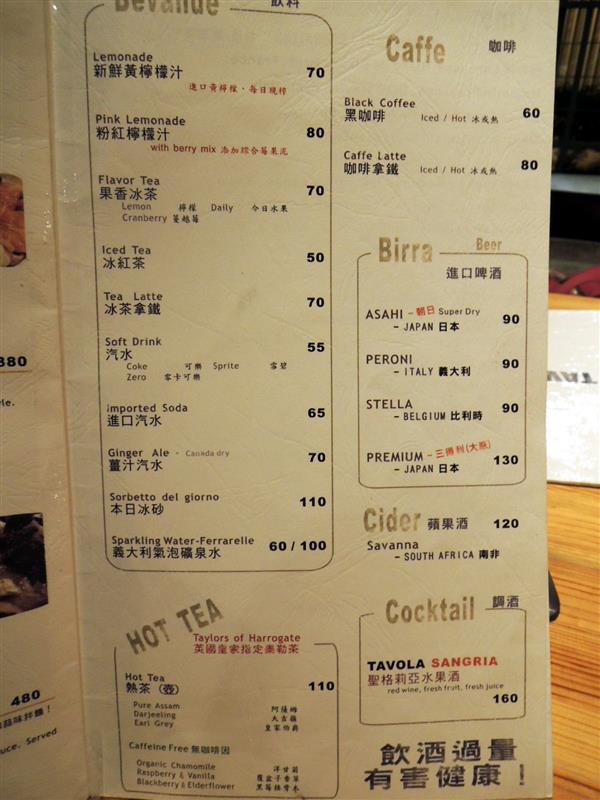 Bevande 飲料
Lemonade
新鮮黃檸檬汁 70
進口黃檸檬・每日現榨
Pink Lemonade
粉紅檸檬汁 80
with berry mix 添加綜合莓果泥
Flavor Tea
果香冰茶 70
Lemon 檸檬 Daily 今日水果
Cranberry 蔓越莓
Iced Tea
冰紅茶 50
Tea Latte
冰茶拿鐵 70
Soft Drink
汽水 55
Coke 可樂 Sprite 雪碧
Zero 零卡可樂
Imported Soda
進口汽水 65
Ginger Ale - Canada dry
薑汁汽水 70
Sorbetto del giorno
本日冰砂 110
Sparkling Water-Ferrarelle
義大利氣泡礦泉水 60 / 100
HOT TEA
Taylors of Harrogate
英國皇家指定泰勒茶
Hot Tea
熱茶 (壺) 110
Pure Assam 阿薩姆
Darjeeling 大吉嶺
Earl Grey 皇家伯爵
Caffeine Free 無咖啡因
Organic Chamomile 洋甘菊
Raspberry & Vanilla 覆盆子香草
Blackberry & Elderflower 黑莓接骨木
Caffe 咖啡
Black Coffee
黑咖啡 Iced / Hot 冰或熱 60
Caffe Latte
咖啡拿鐵 Iced / Hot 冰或熱 80
Birra Beer
進口啤酒
ASAHI - 朝日 Super Dry
- JAPAN 日本 90
PERONI
- ITALY 義大利 90
STELLA
- BELGIUM 比利時 90
PREMIUM - 三得利(大瓶)
- JAPAN 日本 130
Cider 蘋果酒 120
Savanna
- SOUTH AFRICA 南非
Cocktail 調酒
TAVOLA SANGRIA
聖格莉亞水果酒
red wine, fresh fruit, fresh juice
160
飲酒過量
有害健康！
380
yle.
480
蒜味拌麵！
uce. Served